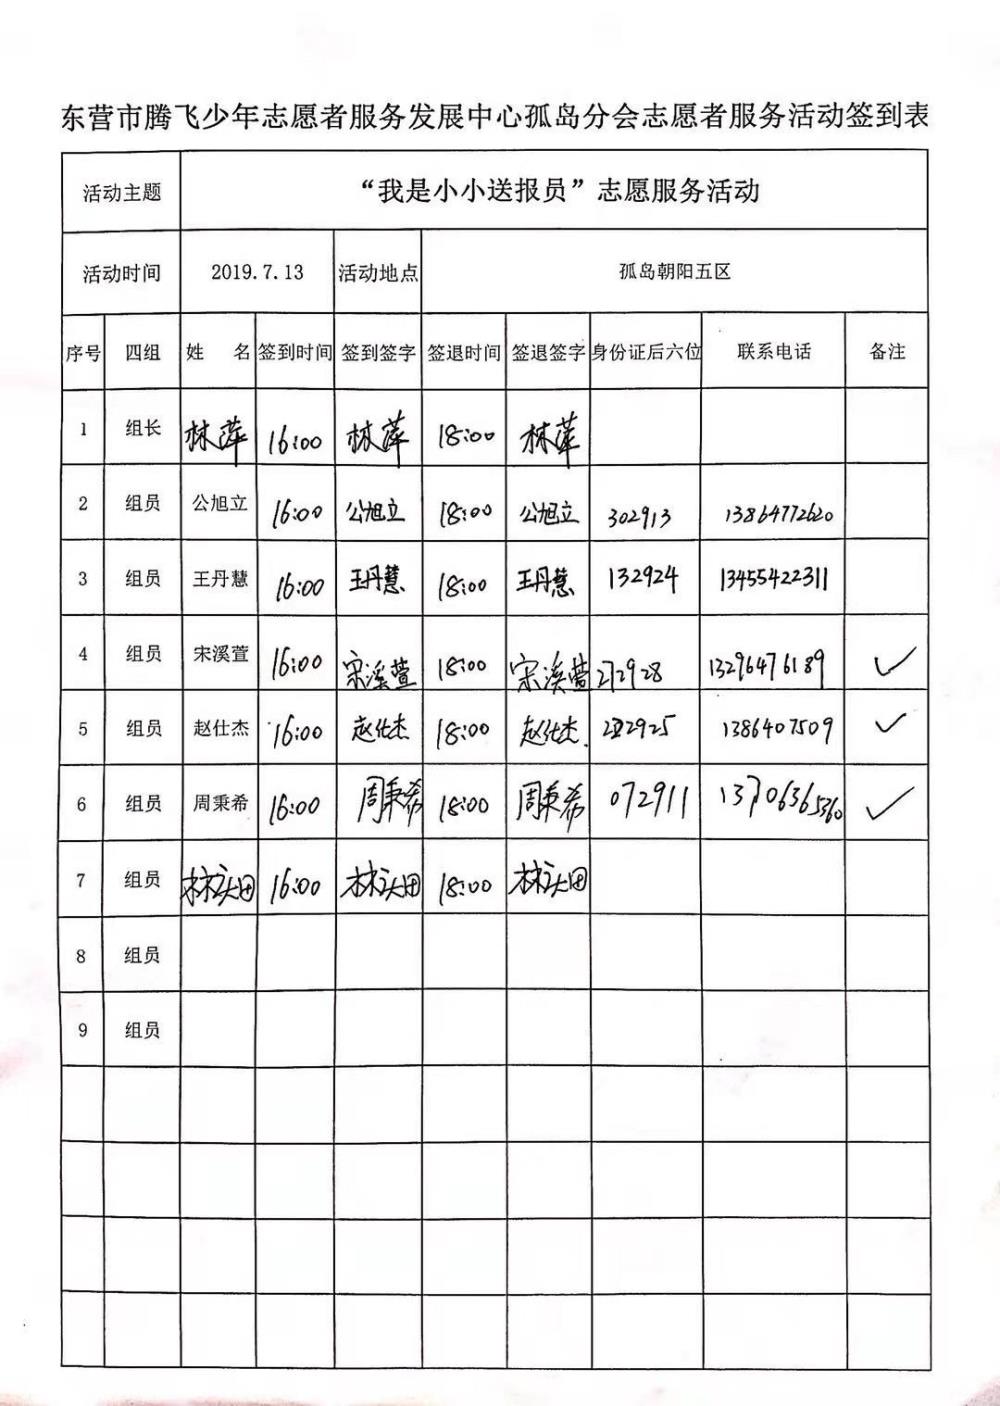 东营市腾飞少年志愿者服务发展中心孤岛分会志愿者服务活动签到表
活动主题 “我是小小送报员”志愿服务活动
活动时间 2019.7.13 活动地点 孤岛朝阳五区
序号 四组 姓 名 签到时间 签到签字 签退时间 签退签字 身份证后六位 联系电话 备注
1 组长 林萍 16:00 林萍 18:00 林萍
2 组员 公旭立 16:00 公旭立 18:00 公旭立 302913 13864772620
3 组员 王丹慧 16:00 王丹慧 18:00 王丹慧 132924 13455422311
4 组员 宋溪萱 16:00 宋溪萱 18:00 宋溪萱 272928 13296476189 ✓
5 组员 赵仕杰 16:00 赵仕杰 18:00 赵仕杰 1386407509 ✓
6 组员 周秉希 16:00 周秉希 18:00 周秉希 072911 ✓
7 组员 16:00 18:00
8 组员
9 组员